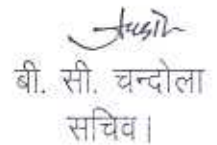 बी. सी. चन्दोला
सचिव।